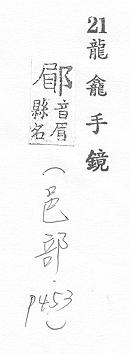 21 龍龕手鏡
郿
音眉
縣名
(邑部 p453)